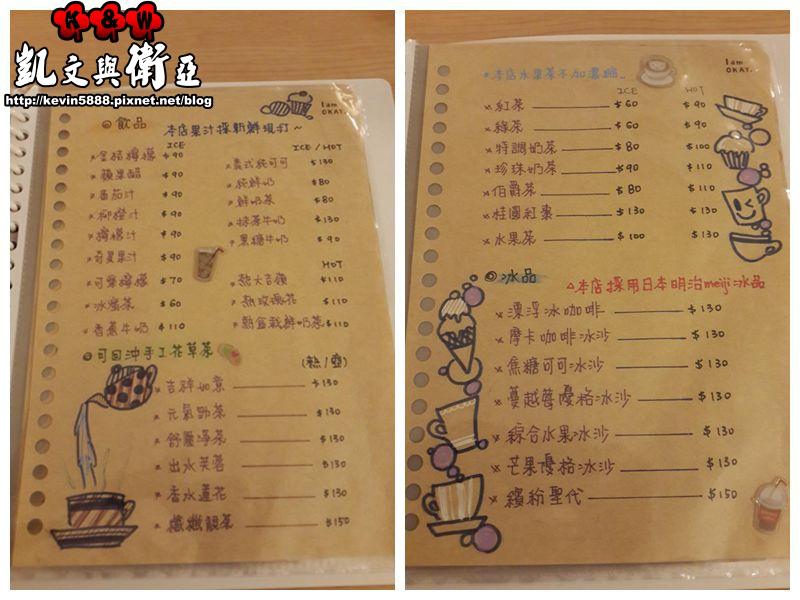 K&W
凱文與衛亞
http://kevin5888.pixnet.net/blog
I am OKAY.
◎飲品 本店果汁採新鮮現打~
ICE
金桔檸檬 $90
蘋果醋 $90
番茄汁 $90
柳橙汁 $90
檸檬汁 $90
奇異果汁 $90
可樂檸檬 $70
冰蜜茶 $60
香蕉牛奶 $110
ICE / HOT
義式純可可 $130
純鮮奶 $80
鮮奶茶 $80
抹茶牛奶 $130
黑糖牛奶 $90
HOT
熱大吉嶺 $110
熱玫瑰花 $110
熱盆栽鮮奶茶 $110
◎可回沖手工花草茶 (熱/壺)
吉祥如意 $130
元氣 $130
舒壓淨茶 $130
出水芙蓉 $130
香水蓮花 $130
纖纖靚茶 $150
本店水果茶不加濃糖
I am OKAY.
ICE HOT
紅茶 $60 $90
綠茶 $60 $90
特調奶茶 $80 $100
珍珠奶茶 $90 $110
伯爵茶 $80 $110
桂圓紅棗 $130 $130
水果茶 $100 $130
◎冰品 △本店採用日本明治meiji冰品
漂浮冰咖啡 $130
摩卡咖啡冰沙 $130
焦糖可可冰沙 $130
蔓越莓優格冰沙 $130
綜合水果冰沙 $130
芒果優格冰沙 $130
繽紛聖代 $150